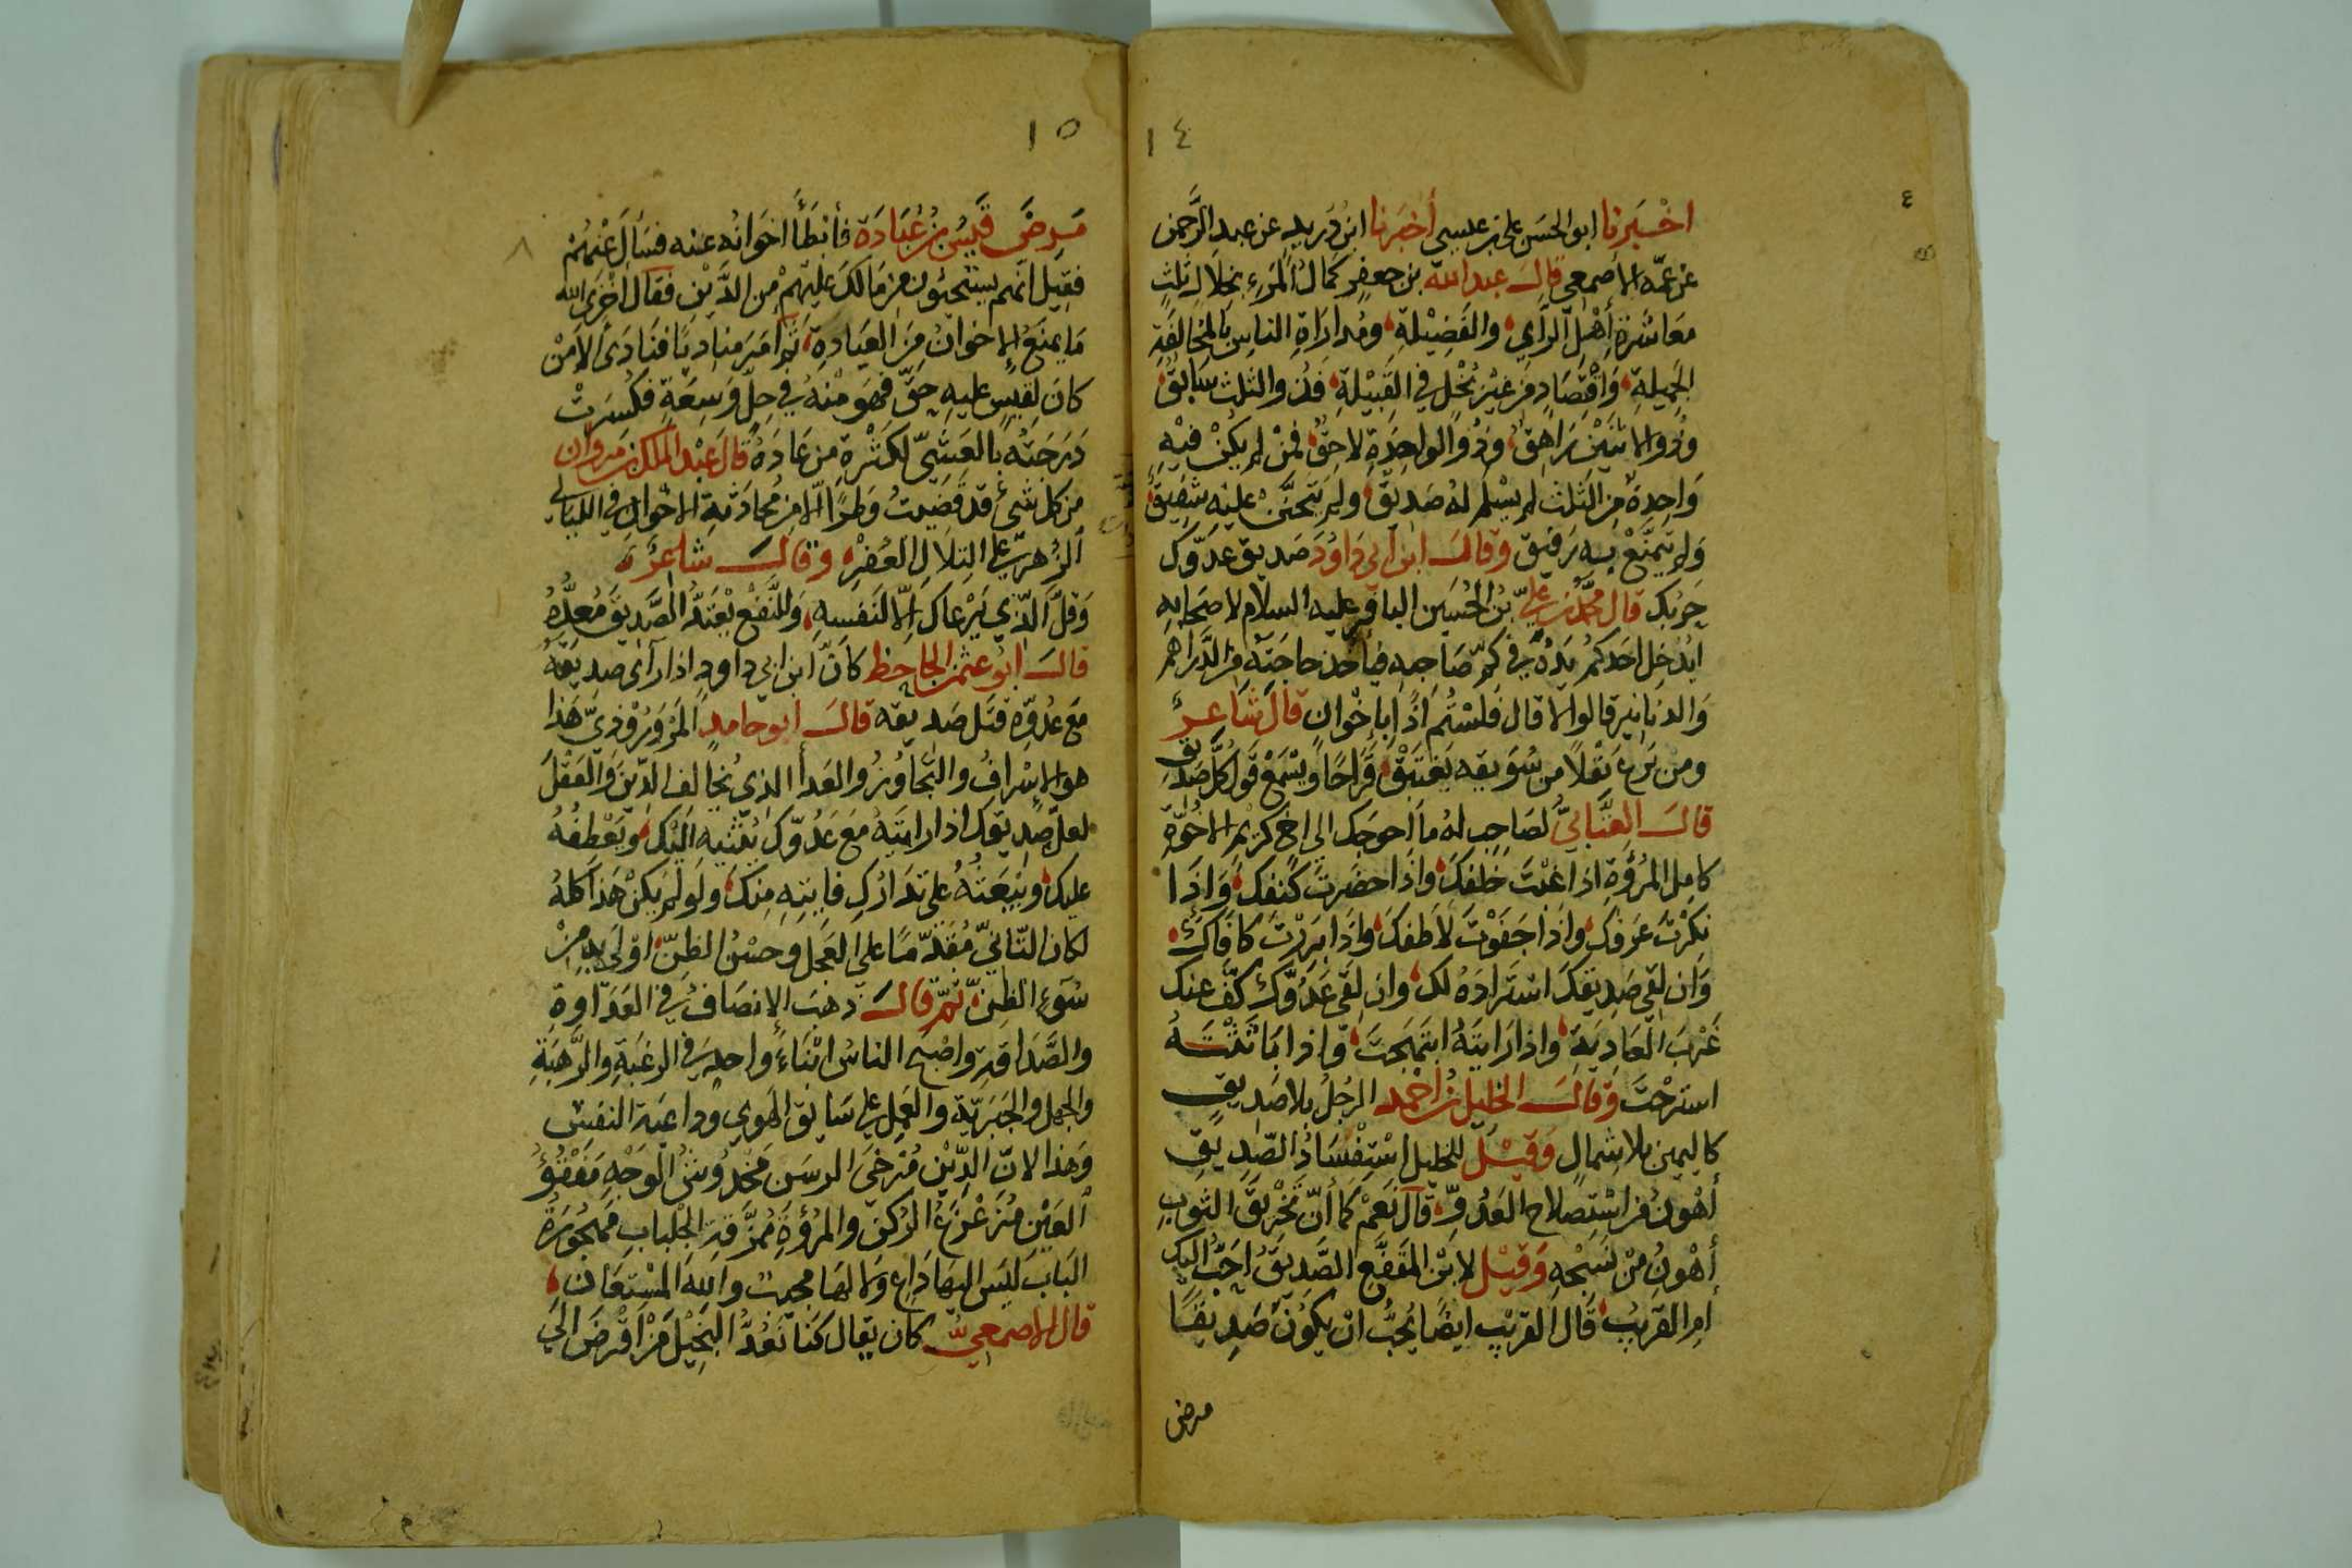 ١٤
٤
اخبرنا ابو الحسن علي بن عيسى أخبرنا ابن دريد عن عبد الرَّحمن
عن عمّه الاصمعي قال عبد الله بن جعفر كمال المرء بخلال ثلث
معاشرة أهل الرأي والفضيلة ومداراة الناس بالمخالقة
الجميلة واقتصاد من غير بخل في القبيلة فذو الثلث سابق
وذو الاثنين راهق وذو الواحدة لاحق فمن لم يكن فيه
واحدة من الثلث لم يسلم له صديق ولم يتحنّن عليه شفيق
ولم يتمتّع به رفيق وقال ابن ابي داود صديق عدوّك
حربك قال محمّد بن عليّ بن الحسين الباقر عليه السلام لاصحابه
ايدخل احدكم يده في كمّ صاحبه فياخذ حاجته من الدراهم
والدنانير قالوا لا قال فلستم اذا باخوان قال شاعر
ومن يرع بقلا من سويقه يغتبق قراحا ويسمع قول كل صديق
قال العتّابيّ لصاحب له ما احوجك الى اخ كريم الاخوّة
كامل المروّة اذا غبت خلفك واذا حضرت كنفك واذا
نكرت عرفك واذا جفوت لاطفك واذا بررت كافاك
وان لقي صديقك استزاده لك وان لقي عدوّك كفّ عنك
غرب العادية واذا رايته ابتهجت واذا باثثته
استرحت وقال الخليل بن احمد الرجل بلا صديق
كاليمين بلا شمال وقيل للخليل استفساد الصّديق
أهون من استصلاح العدوّ قال نعم كما أنّ تخريق الثوب
أهون من نسجه وقيل لابن المقفّع الصّديق احبّ اليك
ام القريب قال القريب ايضا يحبّ ان يكون صديقا
مرض
١٥
٨
مرض قيس بن عبادة فأبطأ اخوانه عنه فسأل عنهم
فقيل انهم يستحيون من مالك عليهم من الدّين فقال اخزى الله
ما يمنع الاخوان من العيادة ثم امر مناديا فنادى الا من
كان لقيس عليه حقّ فهو منه في حلّ وسعة فكسرت
درجته بالعشيّ لكثرة من عاده قال عبد الملك بن مروان
من كل شيء قد قضيت وطرا الا من محادثة الاخوان في الليالي
الزهر على التلال العفر وقال شاعر
وقلّ الذي يرعاك الّا لنفسه وللنّفع يعتدّ الصّديق معدّه
قال ابو عثمن الجاحظ كان ابن ابي داود اذا رآى صديقه
مع عدوّه قتل صديقه قال ابو حامد المروروذيّ هذا
هو الاسراف والتجاوز والعدا الذي يخالف الدين والعقل
لعل صديقك اذا رايته مع عدوّك يثنيه اليك ويعطفه
عليك ويبعثه على تدارك فايته منك ولو لم يكن هذا كله
لكان التّانّي مقدّما على العجل وحسن الظنّ اولى به من
سوء الظنّ ثم قال ذهب الانصاف في العداوة
والصّداقة واصبح الناس ابناء واحد في الرغبة والرّهبة
والجهل والجبريّة والعمل على سابق الهوى وداعية النفس
وهذا لانّ الدّين مرخى الرسن مخدوش الوجه مفقوء
العين مزعزع الركن والمروّة ممزّقة الجلباب مهجورة
الباب ليس اليها داع ولا لها مجيب والله المستعان
قال الاصمعيّ كان يقال كنا نعدّ البخيل من اقرض الى